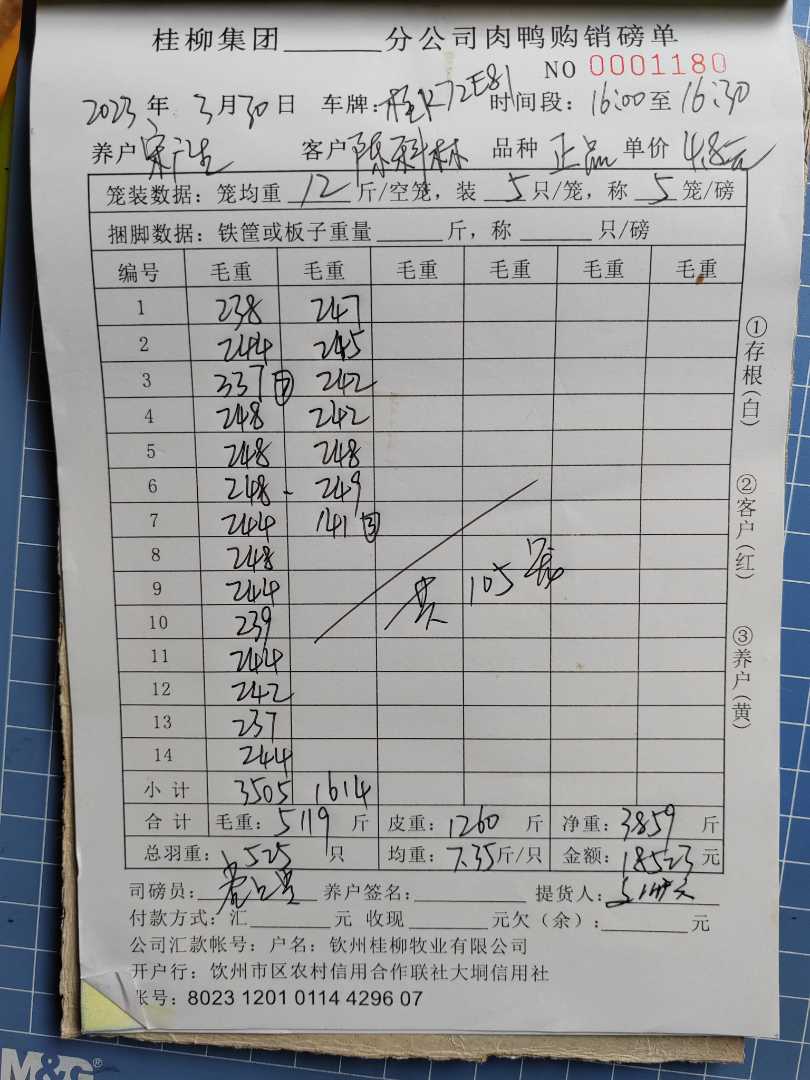 桂柳集团______分公司肉鸭购销磅单
NO 0001180
2023年 3月30日 车牌：桂K72E81 时间段：16:00至16:30
养户 客户 陈 林 品种 正品 单价 4.8元
笼装数据：笼均重 12 斤/空笼，装 5 只/笼，称 5 笼/磅
捆脚数据：铁筐或板子重量______斤，称______只/磅
编号 毛重 毛重 毛重 毛重 毛重 毛重
1 238 247
2 244 245
3 337 ⑦ 242
4 248 242
5 248 248
6 248 - 249
7 244 141 ③
8 248
9 244
10 239
11 244
12 242
13 237
14 244
共 105 笼
小计 3505 1614
合计 毛重：5119 斤 皮重：1260 斤 净重：3859 斤
总羽重：525 只 均重：7.35斤/只 金额：18523元
司磅员： 养户签名：______ 提货人：
付款方式：汇______元 收现______元欠（余）：______元
公司汇款帐号：户名：钦州桂柳牧业有限公司
开户行：饮州市区农村信用合作联社大垌信用社
账号：8023 1201 0114 4296 07
①存根（白）
②客户（红）
③养户（黄）
M&G